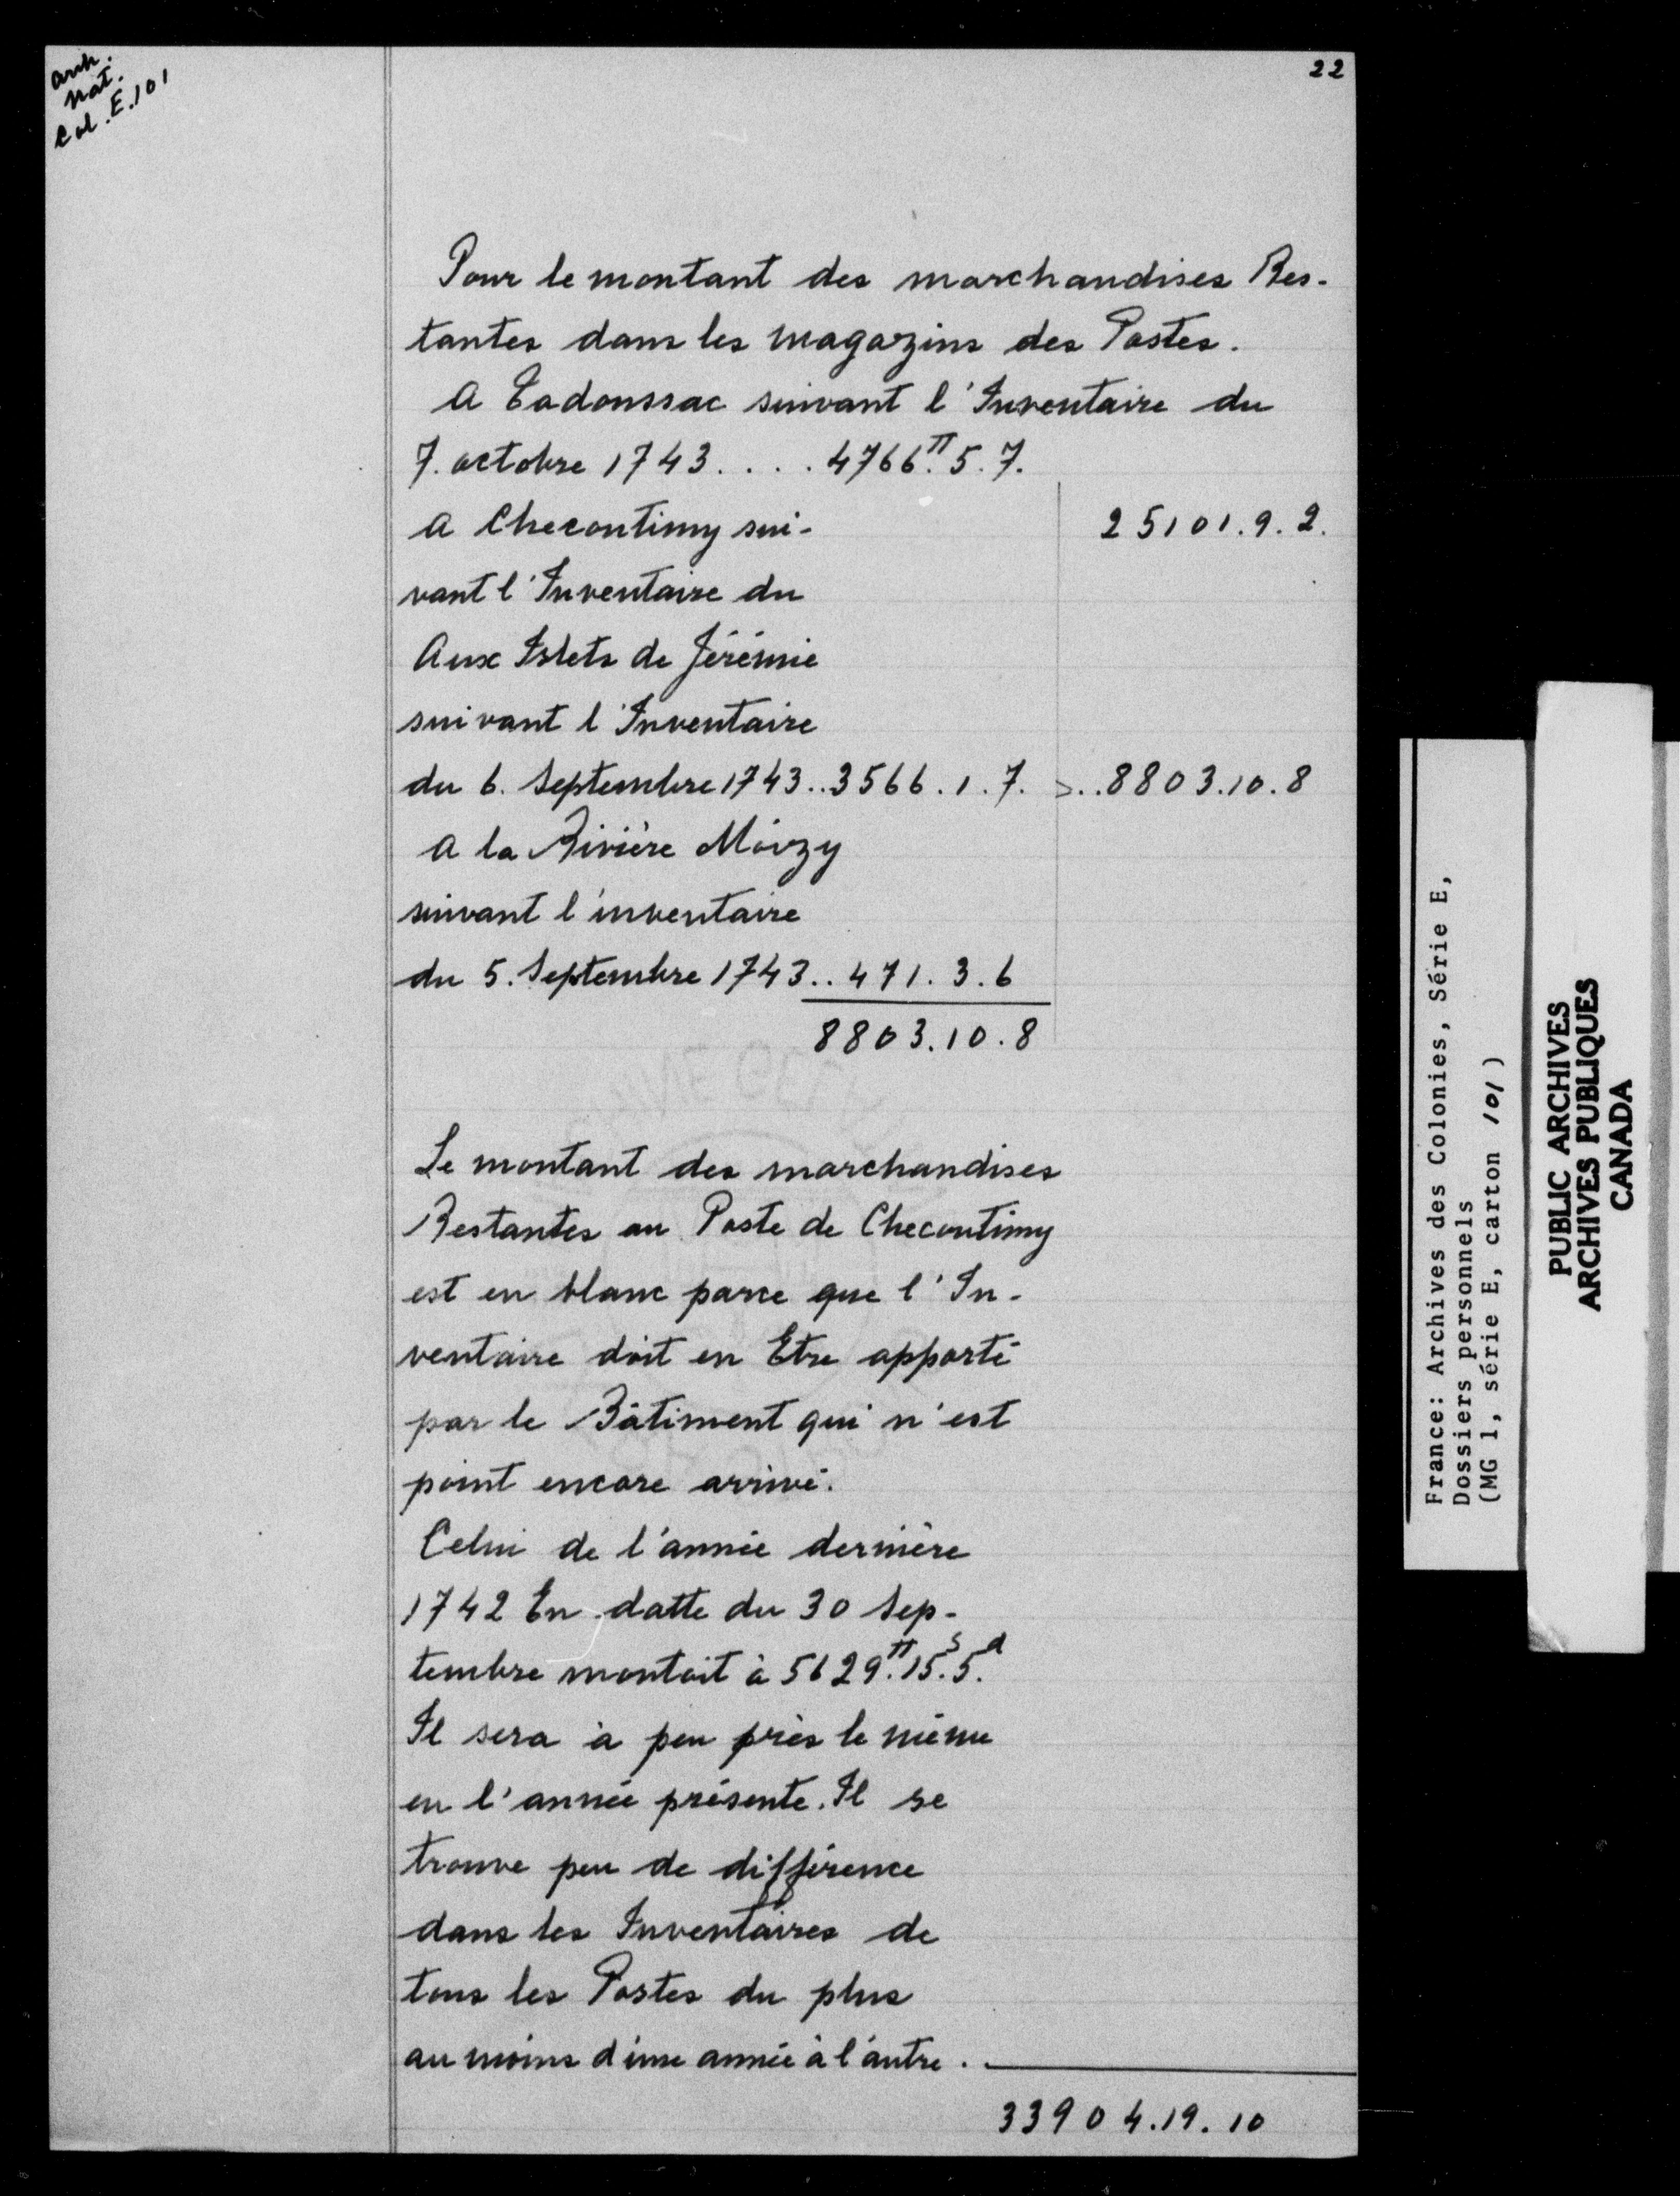 Arch.
Nat.
Col. E.101
22
Pour le montant des marchandises Res-
tantes dans les magazins des Postes.
A Tadoussac suivant l'Inventaire du
7. octobre 1743.... 4766.tt 5. 7.
A Checoutimy sui-
25101. 9. 2.
vant l'Inventaire du
Aux Islets de Jérémie
suivant l'Inventaire
du 6. Septembre 1743.. 3566. 1. 7. >.. 8803. 10. 8
A la Rivière Moizy
suivant l'inventaire
du 5. Septembre 1743.. 471. 3. 6
8803. 10. 8
Le montant des marchandises
Restantes au Poste de Checoutimy
est en blanc parce que l'In-
ventaire doit en Etre apporté
par le Bâtiment qui n'est
point encore arrivé.
Celui de l'année dernière
1742 En datte du 30 Sep-
tembre montoit à 5629.tt 15.s 5.d
Il sera à peu près le même
en l'année présente. Il se
trouve peu de différence
dans les Inventaires de
tous les Postes du plus
au moins d'une année à l'autre.
33904. 19. 10
France: Archives des Colonies, Série E,
Dossiers personnels
(MG 1, série E, carton 101)
PUBLIC ARCHIVES
ARCHIVES PUBLIQUES
CANADA